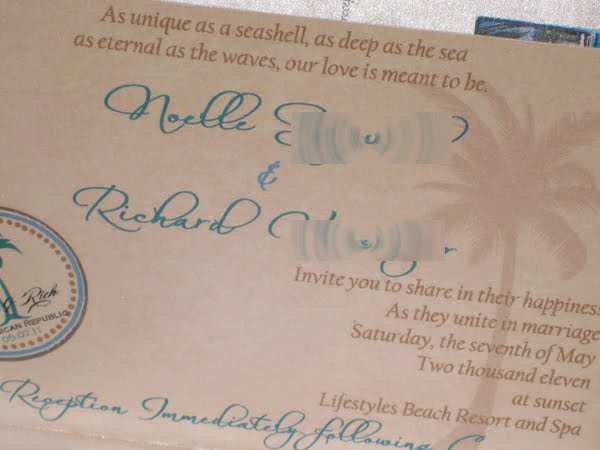 As unique as a seashell, as deep as the sea
as eternal as the waves, our love is meant to be.
Noelle
&
Richard
Rich
REPUBLIC
05.07.11
Invite you to share in their happiness
As they unite in marriage
Saturday, the seventh of May
Two thousand eleven
at sunset
Lifestyles Beach Resort and Spa
Reception Immediately following